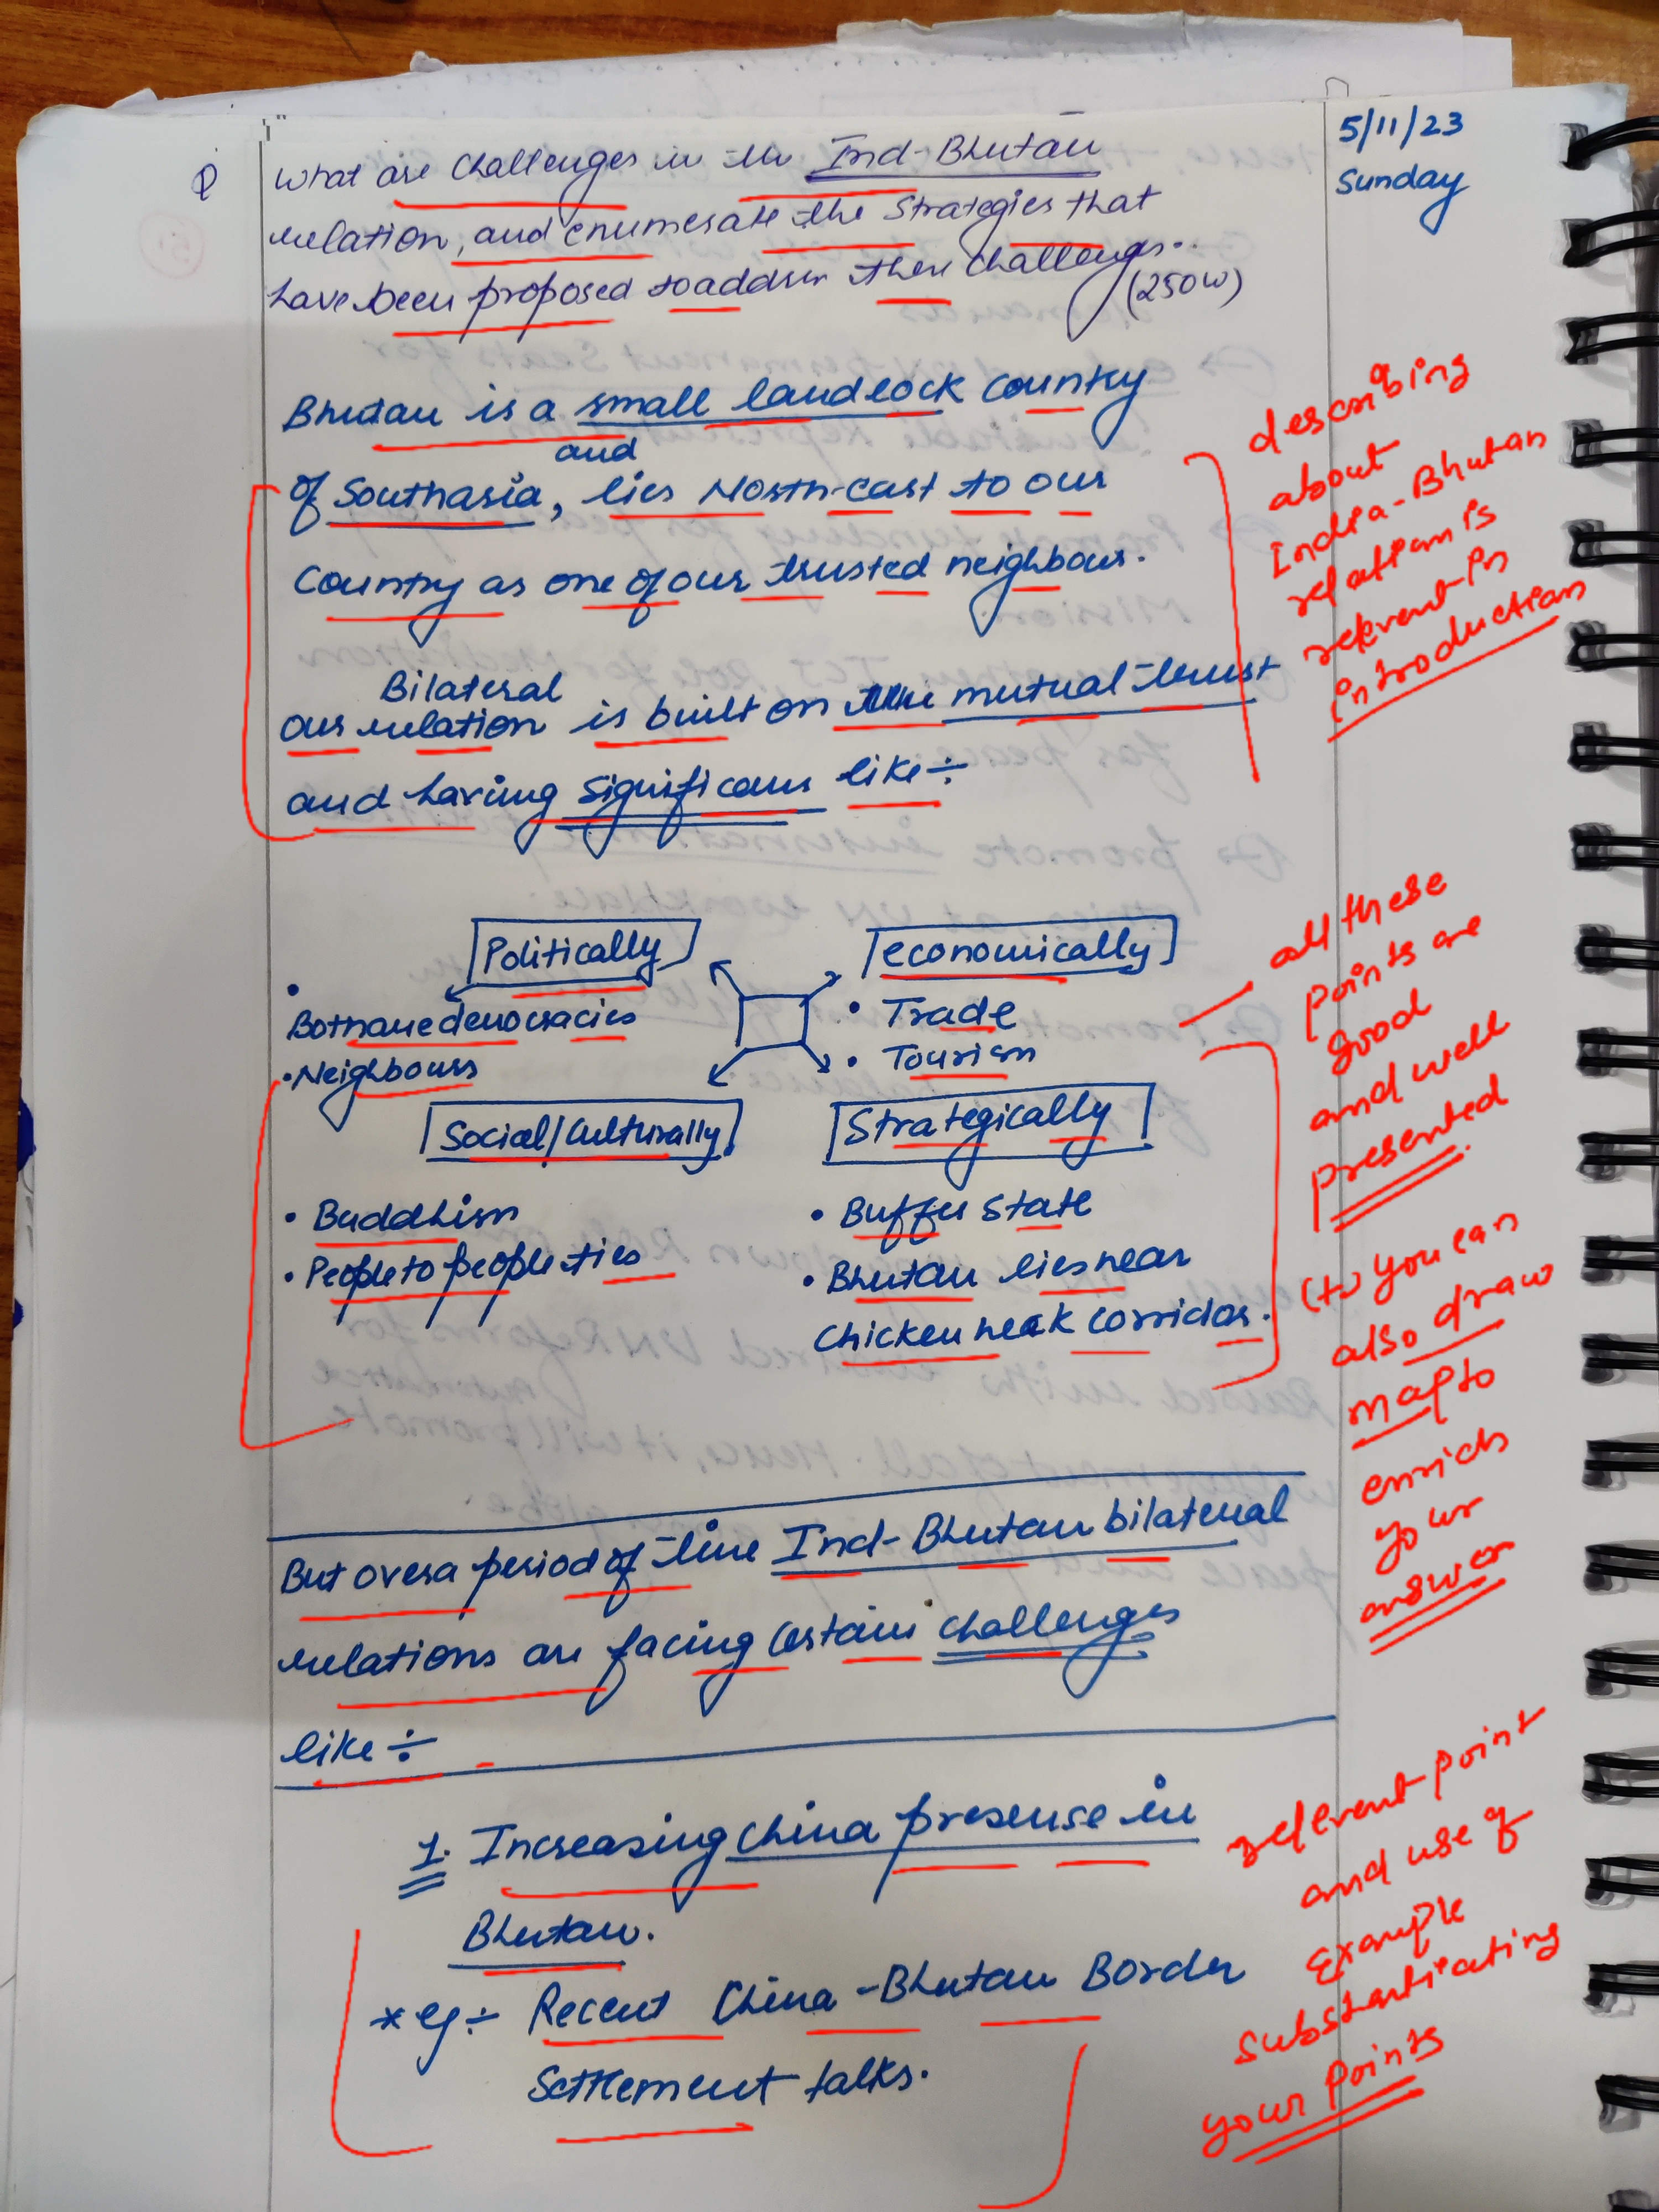 5/11/23
Sunday
Q What are Challenges in the Ind-Bhutan
relation, and enumerate the Strategies that
have been proposed to address these Challenges..
(250w)
Bhutan is a small landlock country
and
of Southasia, lies North-east to our
Country as one of our trusted neighbour.
Bilateral
our relation is built on the mutual trust
and having significans like ÷
describing
about
India-Bhutan
relation is
relevent in
introduction
Politically
• Both are democracies
• Neighbours
economically
• Trade
• Tourism
Social/Culturally
• Buddhism
• People to people ties
Strategically
• Buffer State
• Bhutan lies near
Chicken neak corridor.
all these
points are
good
and well
presented.
(↳ you can
also draw
map to
enrich
your
answer
But over a period of time Ind-Bhutan bilaterial
relations are facing certain challenges
like ÷
1. Increasing China presense in
Bhutan.
* eg ÷ Recent China-Bhutan Border
Settlement talks.
relevent point
and use of
example
substantiating
your points